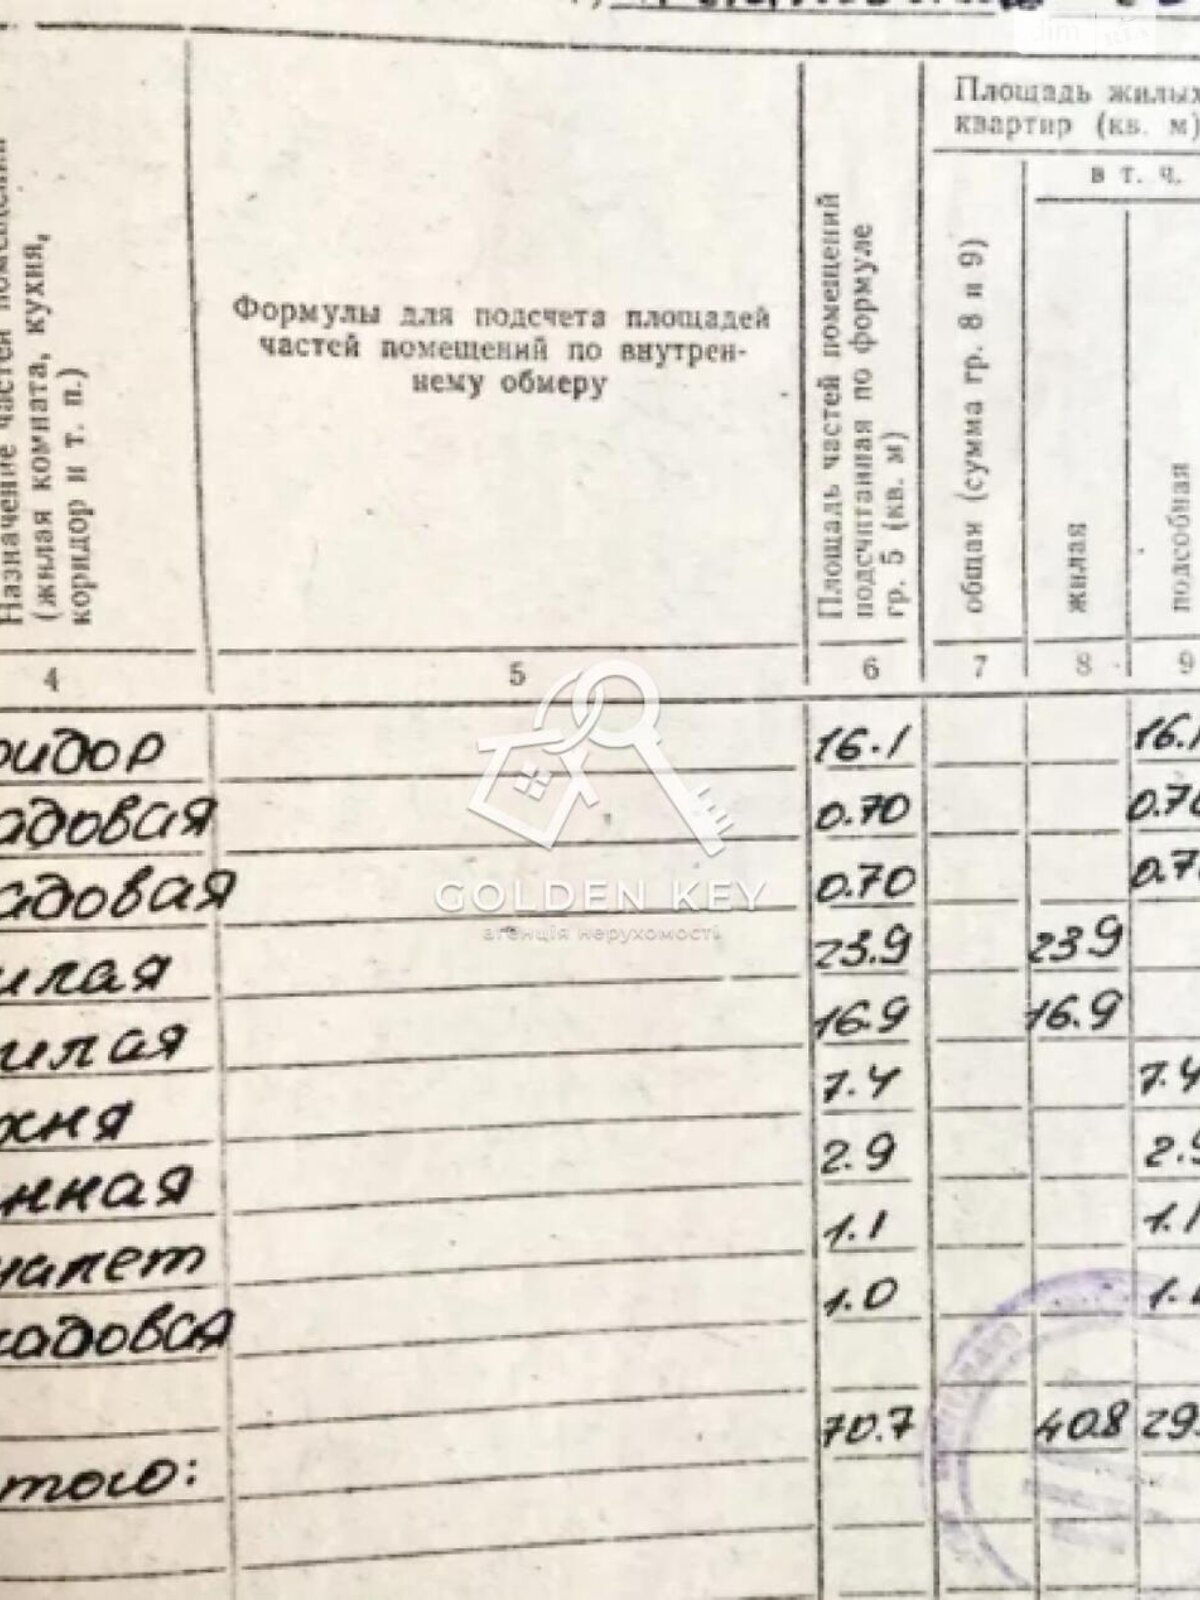 Площадь жилых
квартир (кв. м)
в т. ч.
Назначение частей помещений
(жилая комната, кухня,
коридор и т. п.)
Формулы для подсчета площадей
частей помещений по внутрен-
нему обмеру
Площадь частей помещений
подсчитанная по формуле
гр. 5 (кв. м)
общая (сумма гр. 8 и 9)
жилая
подсобная
4 5 6 7 8 9
ридор 16.1 16.1
адовая 0.70 0.70
адовая 0.70 0.7
илая 23.9 23.9
илая 16.9 16.9
хня 7.4 7.4
нная 2.9 2.9
уалет 1.1 1.1
кадовая 1.0 1.
70.7 40.8 29.
того:
GOLDEN KEY
агенція нерухомості